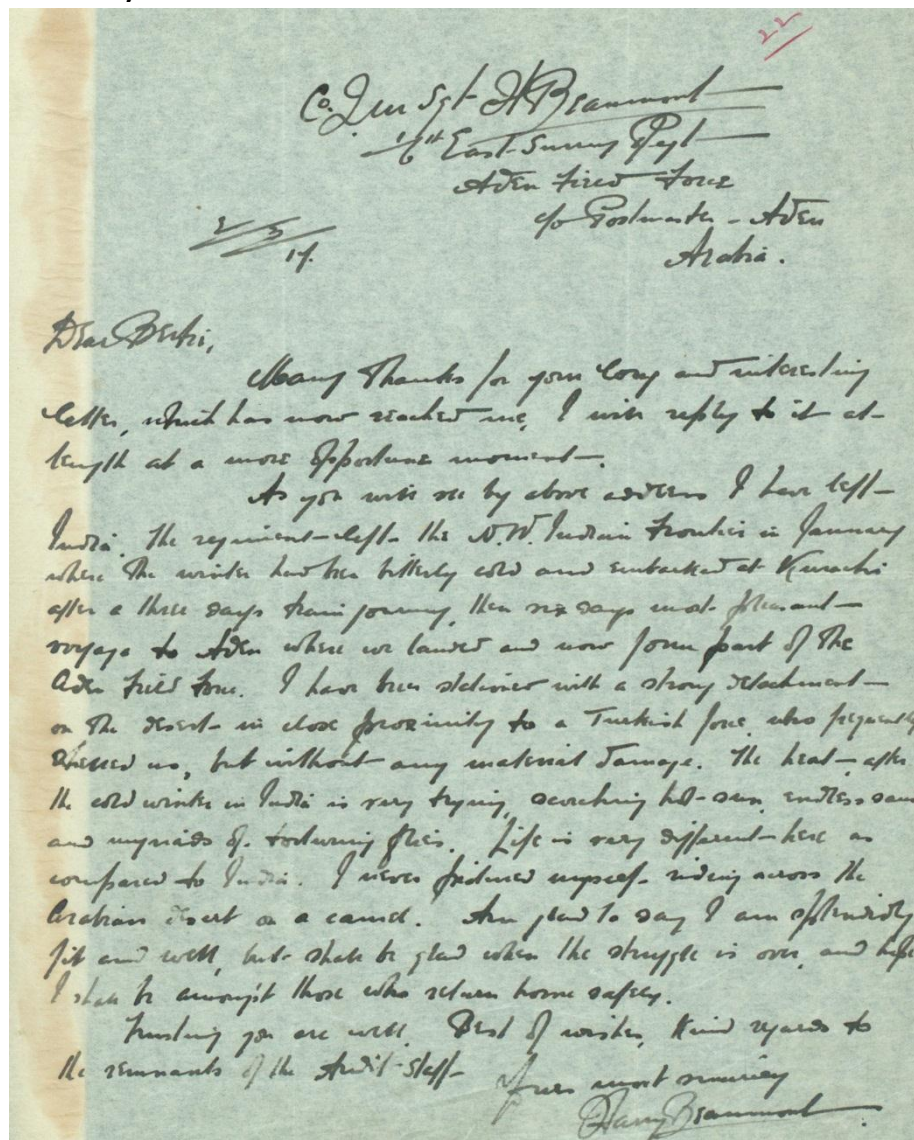 22
Co. Qm Sgt H Beaumont
1/6th East Surrey Regt
Aden Field Force
c/o Postmaster - Aden
Arabia.
2/3/17.
Dear Bertie,
Many Thanks for your long and interesting
letter, which has now reached me, I will reply to it at
length at a more opportune moment.
As you will see by above address I have left
India. The regiment left the N.W. Indian Frontier in January
where the winter had been bitterly cold and embarked at Kurachi
after a three days train journey, then six days most pleasant
voyage to Aden where we landed and now form part of the
Aden Field Force. I have been stationed with a strong detachment
on the desert in close proximity to a Turkish force who frequently
shelled us, but without any material damage. The heat after
the cold winter in India is very trying, scorching hot sun, endless sand
and myriads of torturing flies. Life is very different here as
compared to India. I never pictured myself riding across the
Arabian desert on a camel. Am glad to say I am splendidly
fit and well, but shall be glad when the struggle is over, and hope
I shall be amongst those who return home safely.
Trusting you are well. Best of wishes, Kind regards to
the remnants of the Audit Staff
Yours most sincerely
Harry Beaumont